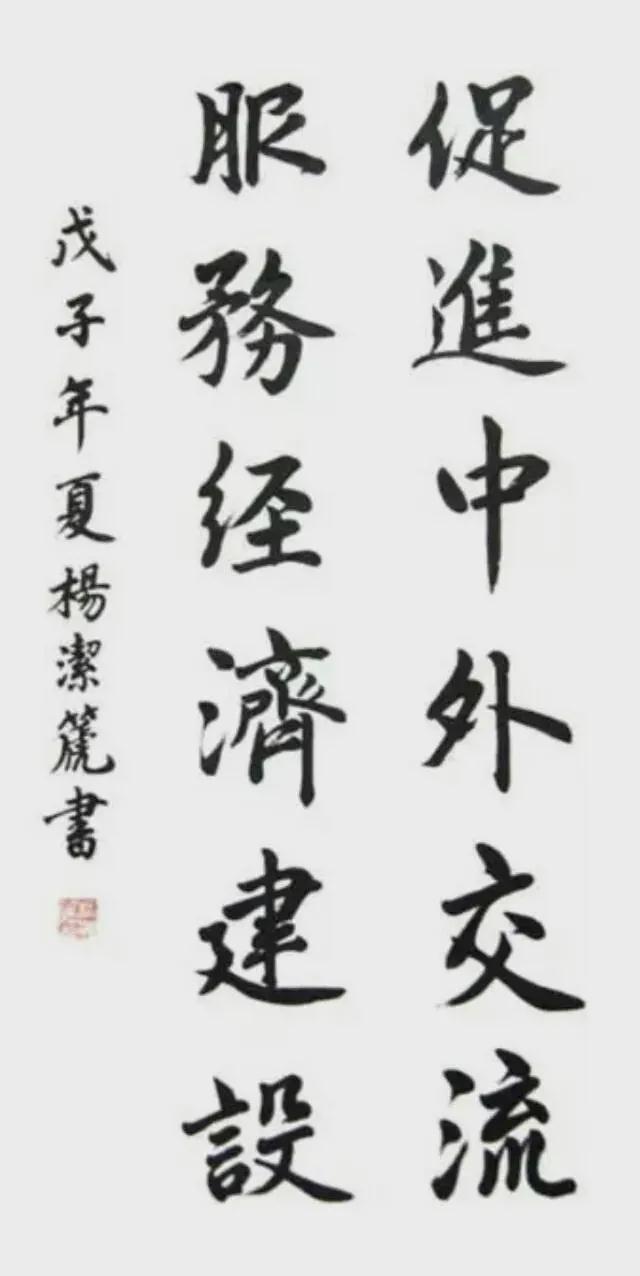 促進中外交流
服務経濟建設
戊子年夏楊潔篪書